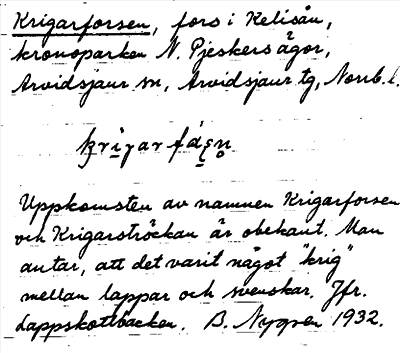 Krigarforsen, fors i Kelisån,
kronoparken N. Pjeskers ägor,
Arvidsjaur sn, Arvidsjaur tg, Norrb. l.
Uppkomsten av namnen Krigarforsen
och Krigarsträckan är obekant. Man
antar, att det varit något "krig"
mellan lappar och svenskar. Jfr.
Lappskottbacken. B. Nygren 1932.